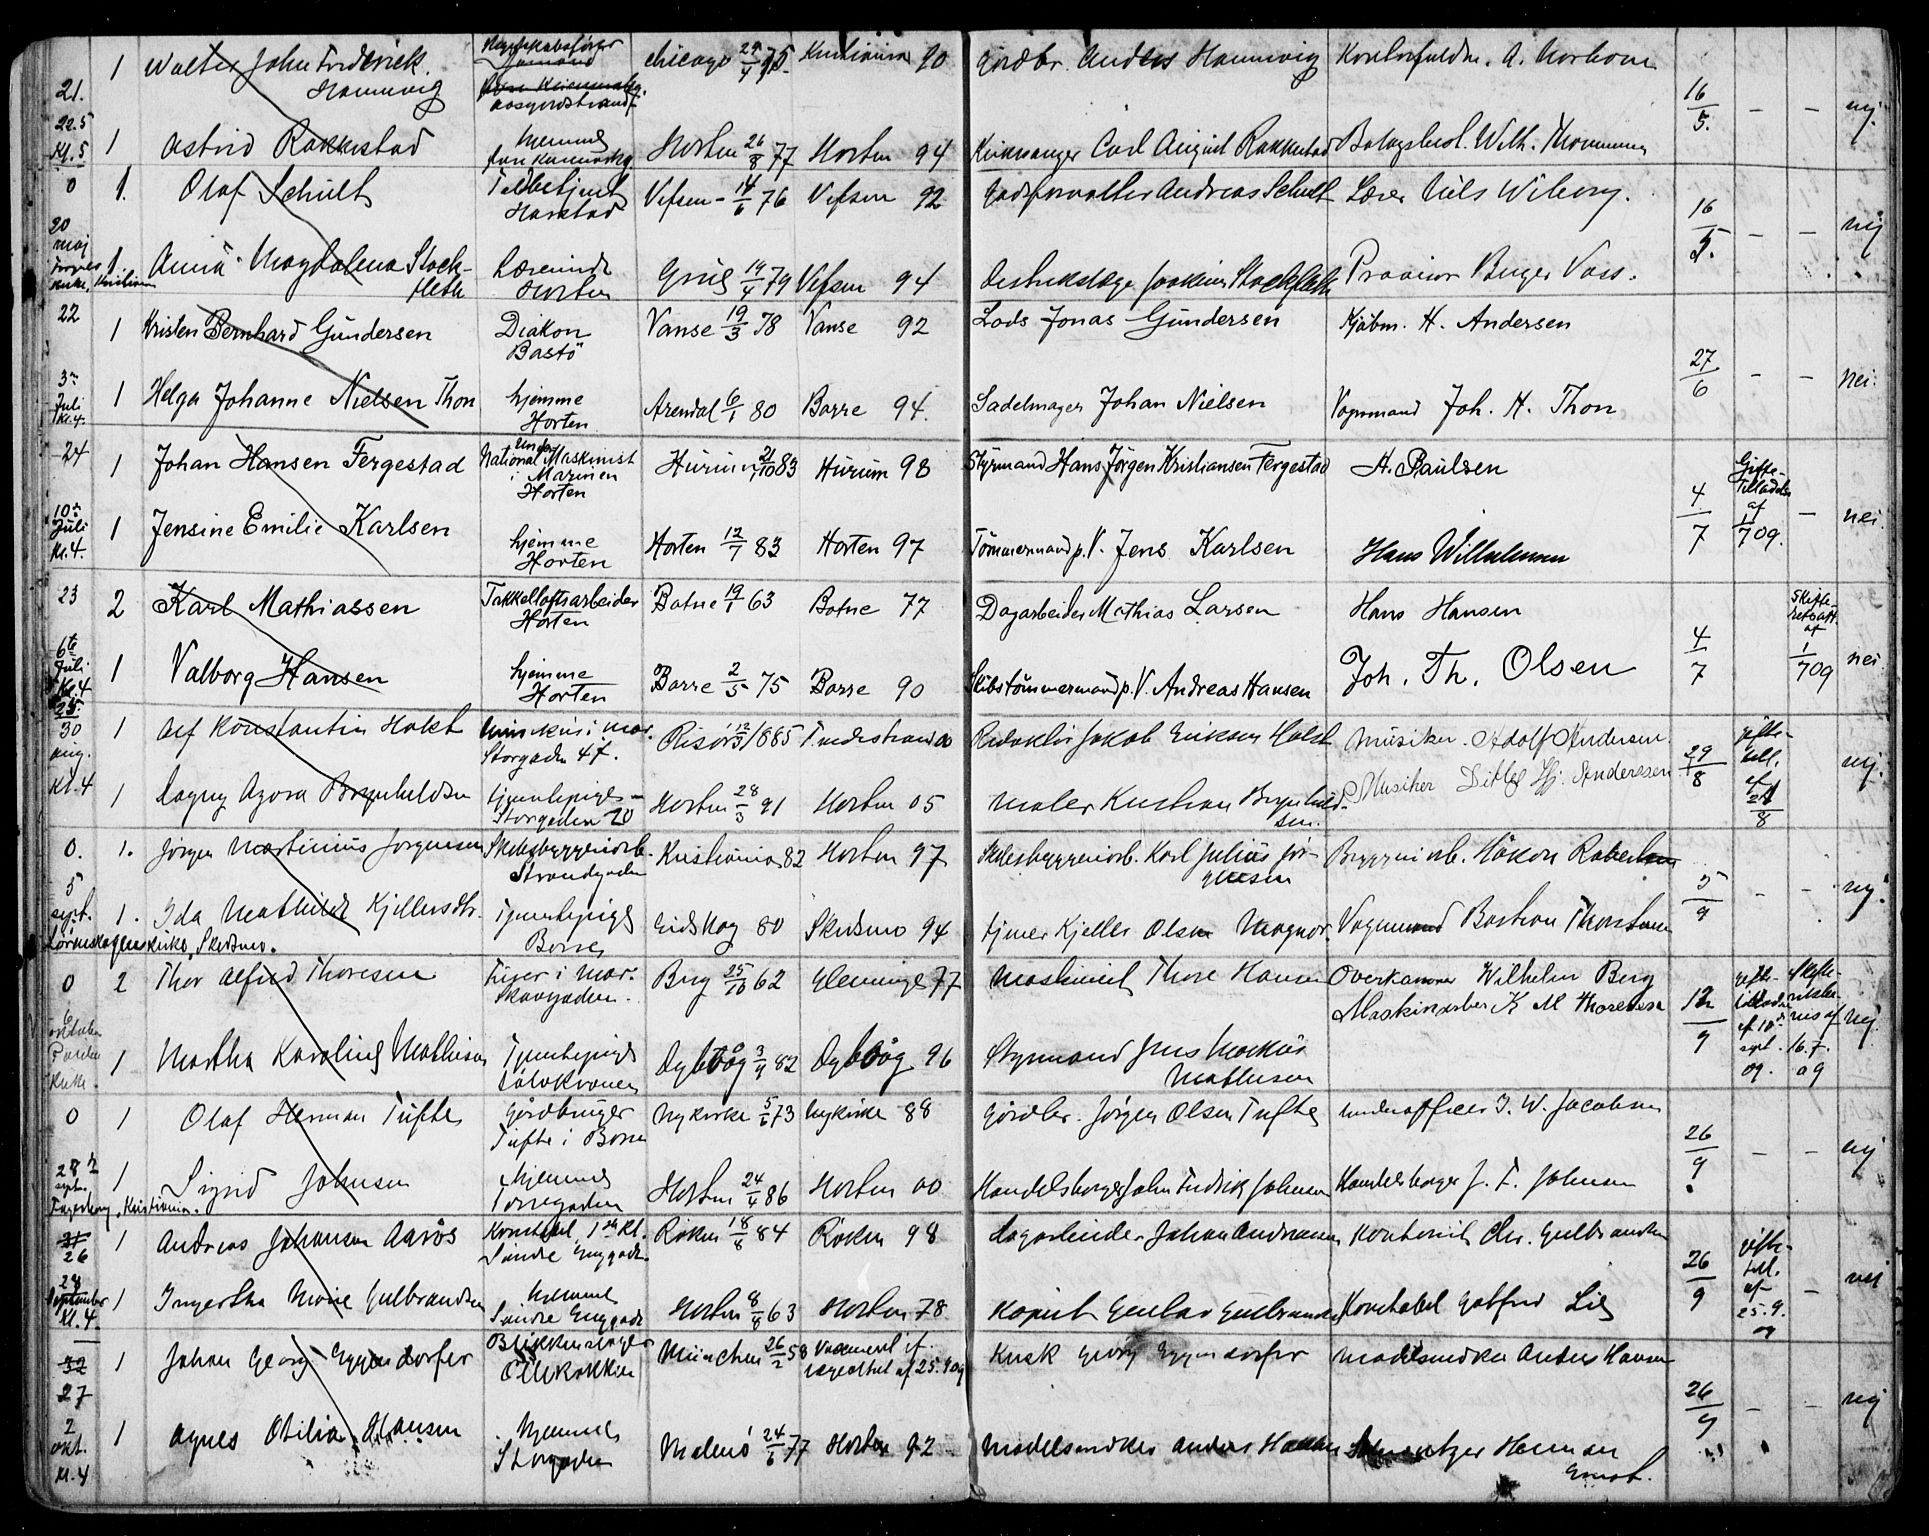 21. 1 Walter John Frederick Hannevig Regnskabsfører Chicago 24/4 75 Kristiania 90 Gårdbr. Anders Hannevig Kontorfuldm. A. Norbom 16/5. — — nej.
Aasgaardstrand
22.5 Kl. 5 1 Astrid Rakkestad hjemme Horten 26/8 77 Horten 94 Kirkesanger Carl August Rakkestad Wilh. Thommesen
0 1. Olaf Schult Harstad Vefsen 14/6 76 Vefsen 92 Godsforvalter Andreas Schult Lærer Nils Wiborg. 16/5. — — nej
20 maj 1. Anna Magdalena Stockfleth Lærerinde Horten 14/4 79 Vefsen 94 Distriktslæge Joakim Stockfleth Provisor Birger Voss.
Kristiania
22 1 Kristen Bernhard Gundersen Diakon Bastö Vanse 19/3 78 Vanse 92 Lods Jonas Gundersen Kjøbm. H. Andersen 27/6 — — nei.
3' Juli Kl. 4. 1 Helga Johanne Nielsen Thon hjemme Horten Arendal 6/1 80 Borre 94. Sadelmager Johan Nielsen Vognmand Joh. H. Thon
24 1 Johan Hansen Fergestad Under Maskinist i Marinen Horten Hurum 2/10 83 Hurum 98 Styrmand Hans Jörgen Kristiansen Fergestad H. Paulsen 4/7 Gifte-Tilladelse af 1/7 09. — nei.
10' Juli Kl. 4. 1 Jensine Emilie Karlsen hjemme Horten Horten 12/7 83 Horten 97 Tömmermand p. V. Jens Karlsen Hans Willumsen
23 2 Karl Mathiassen Takkelloftsarbeider Horten Botne 19/1 63 Botne 77 Dagarbeider Mathias Larsen Hans Hansen 4/7 Skifteretsatt. af 1/7 09 nei
6te Juli Kl. 4 1 Valborg Hansen hjemme Horten Borre 2/5 75 Borre 90 Skibstömmermand p. V. Andreas Hansen Joh. Th. Olsen
25 30 aug. 1 Alf Konstantin Holst Storgaden 47. Risör 12/3 1885 Tvedestrand 00 Redaktör Jakob Eriksen Holst Musiker. Adolf Andersen. 29/8 gifte-till. af 28/8 nej.
Kl. 4 1 Dagny Agora Brynhildsen tjenestepige Storgaden 20 Horten 28/3 91 Horten 05 Maler Kristian Brynhildsen. Musiker Ditlef Hj. Anderssen
0. 1. Jörgen Martinius Jorgensen Skibsbyggeriarb. Strandgaden Kristiania 82 Horten 97 Skibsbyggeriarb. Karl Julius Jörgensen Byggeriarb. Håkon Robertsen 5/9 — — nej.
5 sept. 1. Ida Mathilde Kjellersdtr. Tjenestepige Borre Eidskog 80 Skedsmo 94 Kjeller Olsen Magnor. Vognmand Bastian Thorstensen
Lørenskogens kirke, Skedsmo.
0 2 Thor Alfred Thoresen Fyrer i mar. Skovgaden. Berg 25/10 62 Glemminge 77 Maskinist Thore Hansen Overkanoner Wilhelm Berg 12/9 gifte-tilladelse af 10' sept. 09. Skifte- af 16.7. 09 nej
Maskinarbei K M Thoresen
6 1 Martha Karoline Mathisen Tjenestepige Dybvåg 3/9 82 Dybvåg 96 Styrmand Jens Markus Mathisen
0 1 Olaf Herman Tufte Gårdbruger Tufte i Borre Nykirke 5/6 73 Nykirke 88 Gårdbr. Jörgen Olsen Tufte Underofficer J. W. Jacobsen 26/9 — — nej
28' sept. 1 Sigrid Johnsen hjemme Torvegaden Horten 24/4 86 Horten 00 Handelsborger John Fredrik Johnsen Handelsborger J. F. Johnsen
Fagerborg, Kristiania.
31 26 1 Andreas Johansen Aarös Konstabel 1ste Kl. Søndre Enggade Röken 18/8 84 Röken 98 Dagarbeider Johan Andreassen Kontorist Chr. Gulbrandsen 26/9 gifte-till. af 25.9. 09 — nei
28 September Kl. 4. 1 Ingertha Marie Gulbrandsen hjemme Søndre Enggade Horten 8/8 63 Horten 78 Kaptein Gustav Gulbrandsen Konstabel Gotfred Lie
32 27 1 Johan Georg Eggendorfer Blikkenslager München 26/2 58 lægeattest af 25.9.09 Kusk Georg Eggendorfer Modelsnedker Anders Hansen 26/9 — — nej
2 okt. Kl. 4 1 Agnes Otilia Hansen hjemme Storgaden Malmö 24/6 77 Horten 92 Modelsnedker Anders Hansen Herman Ernst.